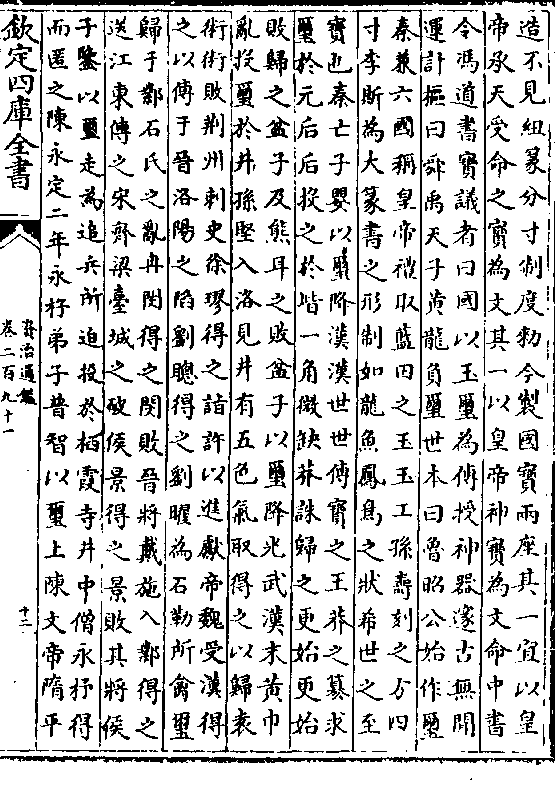 造不見紐篆分寸制度勅今製國寶兩座其一宜以皇
帝承天受命之寶為文其一以皇帝神寶為文命中書
令馮道書寶議者曰國以玉璽為傳授神器邃古無聞
運計樞曰舜禹天子黃龍負璽世本曰魯昭公始作璽
秦兼六國稱皇帝襚取藍田之玉玉工孫壽刻之方四
寸李斯為大篆書之形制如龍魚鳳鳥之狀希世之至
寶也秦亡子嬰以璽降漢漢世世傳寶之王莽之簒求
璽於元后后投之於堦一角微缺莽誅歸之更始更始
敗歸之盆子及熊耳之敗盆子以璽降光武漢末黃巾
亂投璽於井孫堅入洛見井有五色氣取得之以歸袁
術術敗荆州刺史徐璆得之詣許以進獻帝魏受漢得
之以傳于晉洛陽之陷劉聰得之劉曜為石勒所禽璽
歸于鄴石氏之亂冉閔得之閔敗晉將戴施入鄴得之
送江東傳之宋齊梁臺城之破侯景得之景敗其將侯
子鑒以璽走為追兵所迫投於栖霞寺井中僧永杼得
而匿之陳永定二年永杼弟子普智以璽上陳文帝隋平
欽定四庫全書
資治通鑑
卷二百九十一
十二